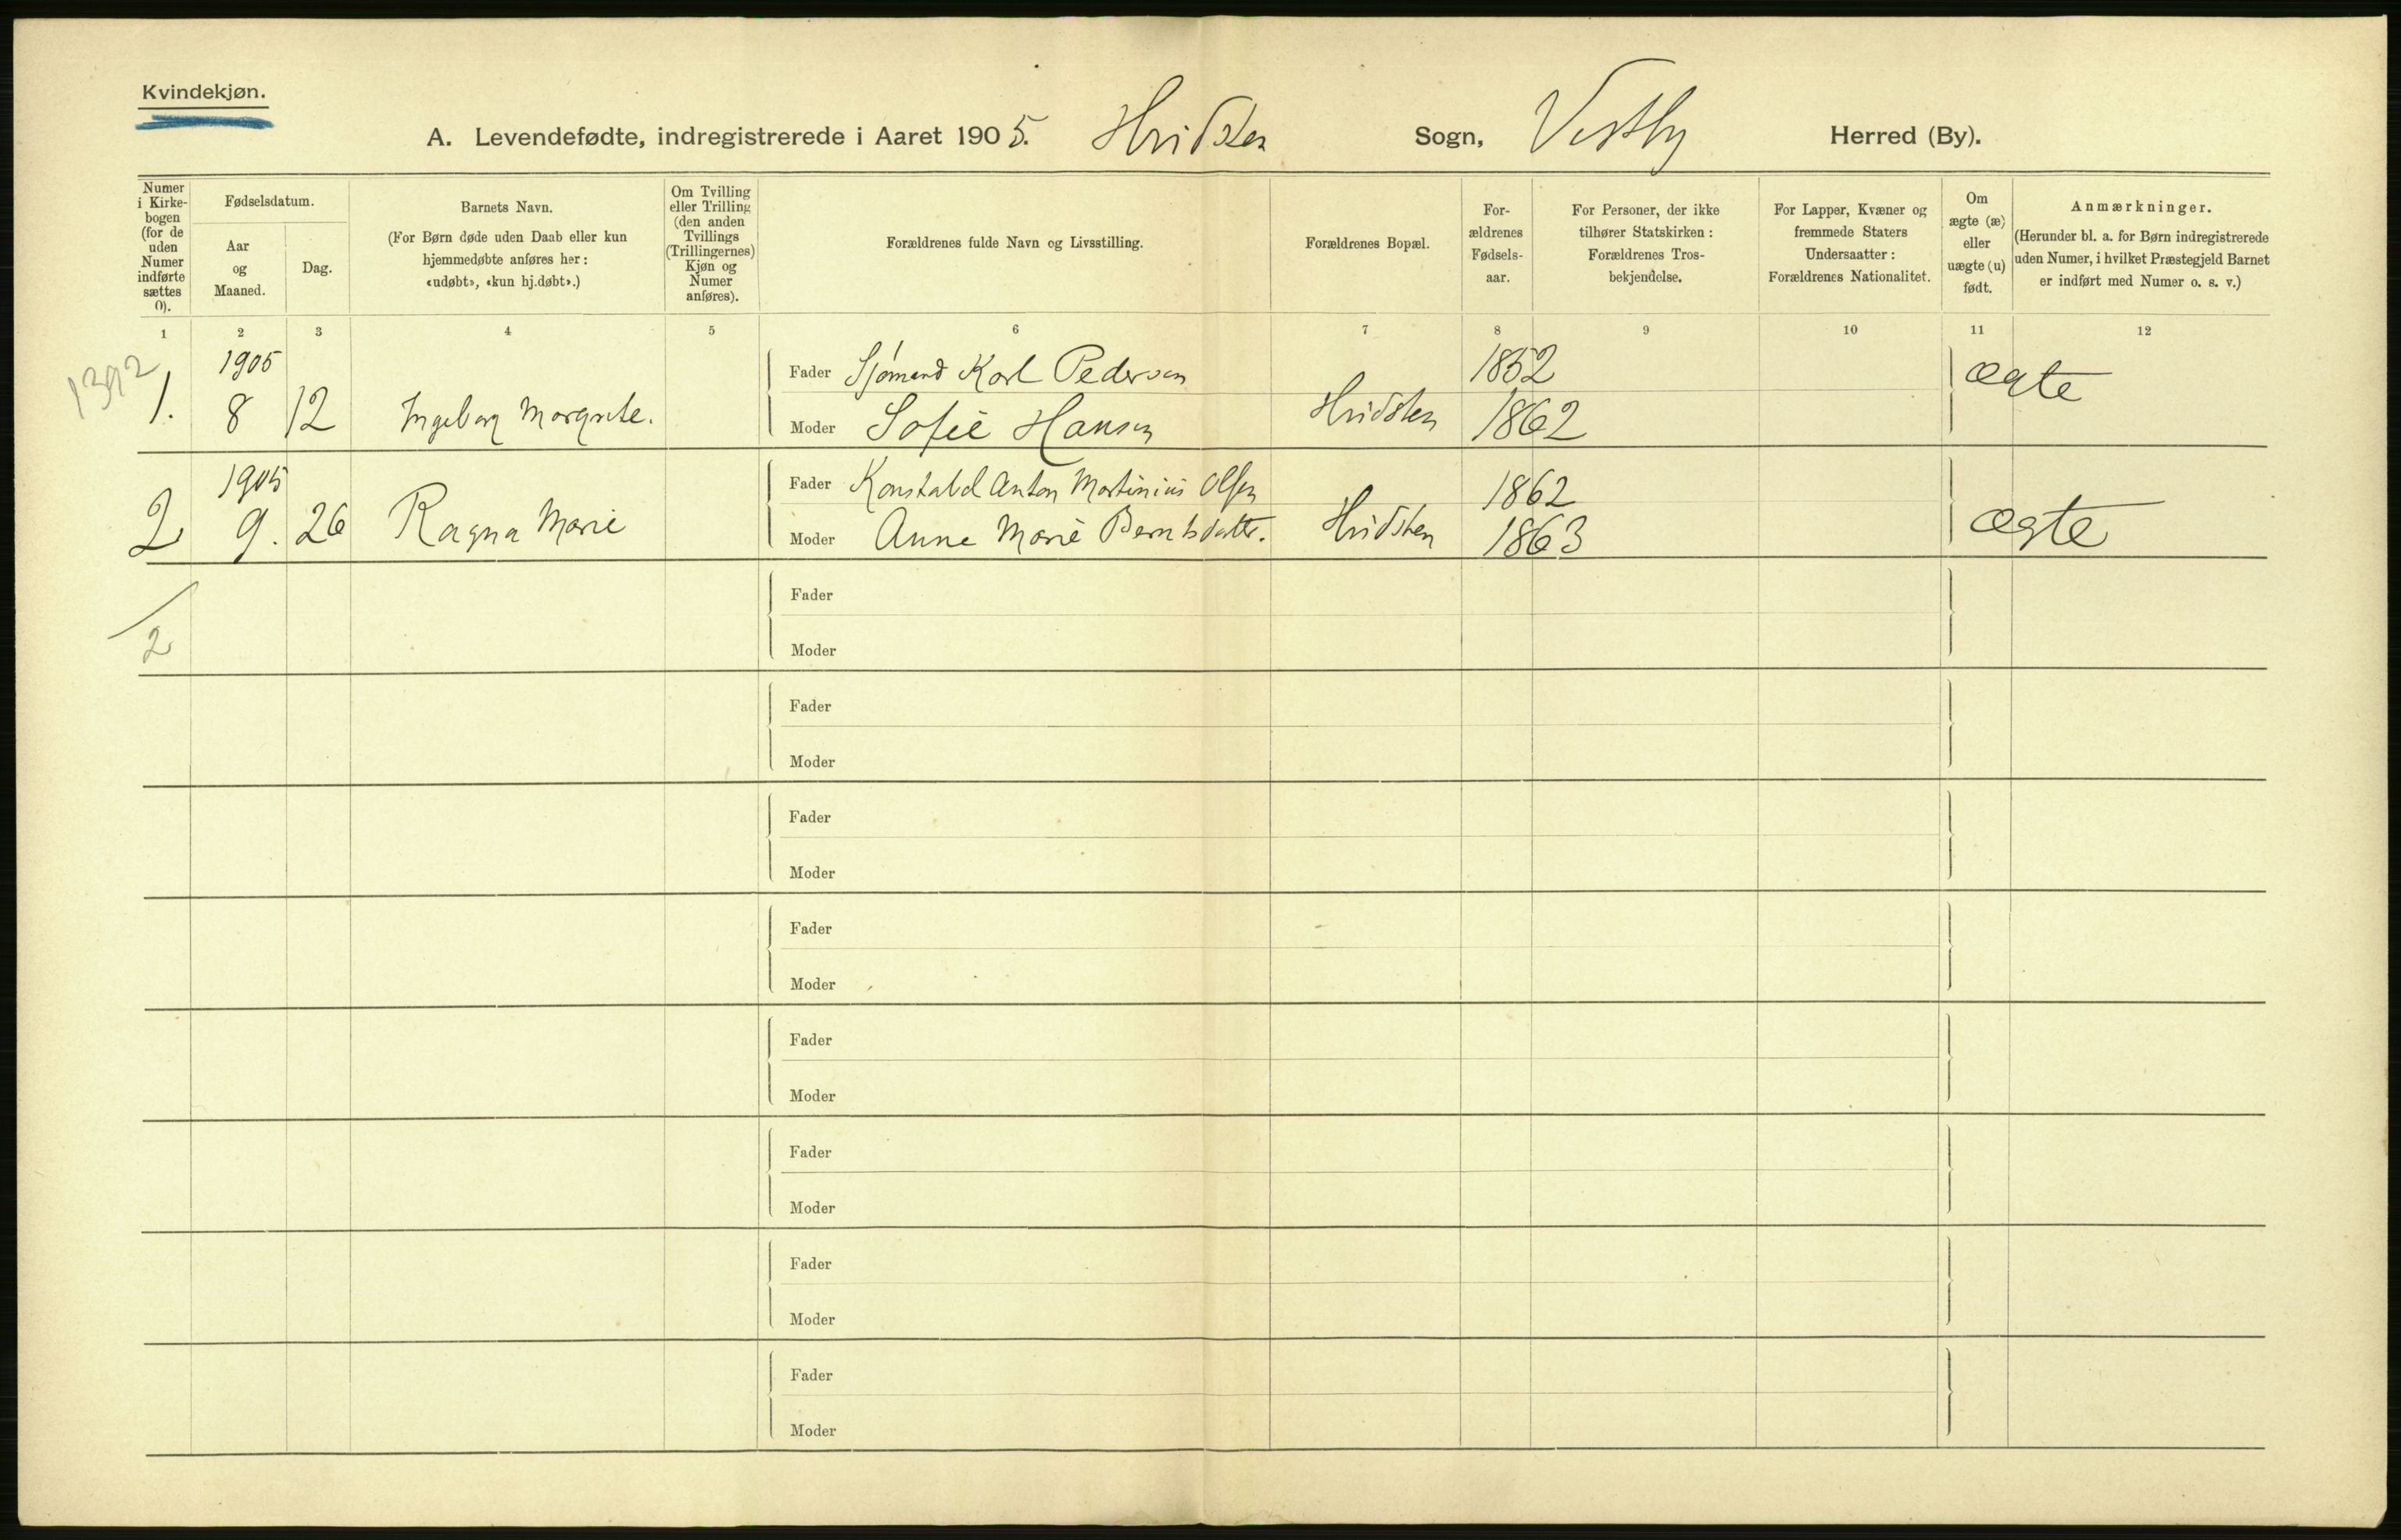 Kvindekjøn.
A. Levendefødte, indregistrerede i Aaret 1905. Hvidsten Sogn, Vestby Herred (By).
Numer i Kirke-bogen (for de uden Numer indførte sættes 0).
Fødselsdatum.
Aar og Maaned.
Dag.
Barnets Navn.
(For Børn døde uden Daab eller kun hjemmedøbte anføres her: «udøbt», «kun hj.døbt».)
Om Tvilling eller Trilling (den anden Tvillings (Trillingernes) Kjøn og Numer anføres).
Forældrenes fulde Navn og Livsstilling.
Forældrenes Bopæl.
For-ældrenes Fødsels-aar.
For Personer, der ikke tilhører Statskirken: Forældrenes Tros-bekjendelse.
For Lapper, Kvæner og fremmede Staters Undersaatter: Forældrenes Nationalitet.
Om ægte (æ) eller uægte (u) født.
Anmærkninger.
(Herunder bl. a. for Børn indregistrerede uden Numer, i hvilket Præstegjeld Barnet er indført med Numer o. s. v.)
1 2 3 4 5 6 7 8 9 10 11 12
1392
1905 Fader Sjømand Karl Pedersen 1852 ægte
1. 8 12 Ingeborg Margrete. Moder Sofie Hansen Hvidsten 1862
1905 Fader Konstabel Anton Martinius Olsen 1862
2 9. 26 Ragna Marie Moder Anne Marie Berntsdattr. Hvidsten 1863 ægte
Fader
2
Moder
Fader
Moder
Fader
Moder
Fader
Moder
Fader
Moder
Fader
Moder
Fader
Moder
Fader
Moder